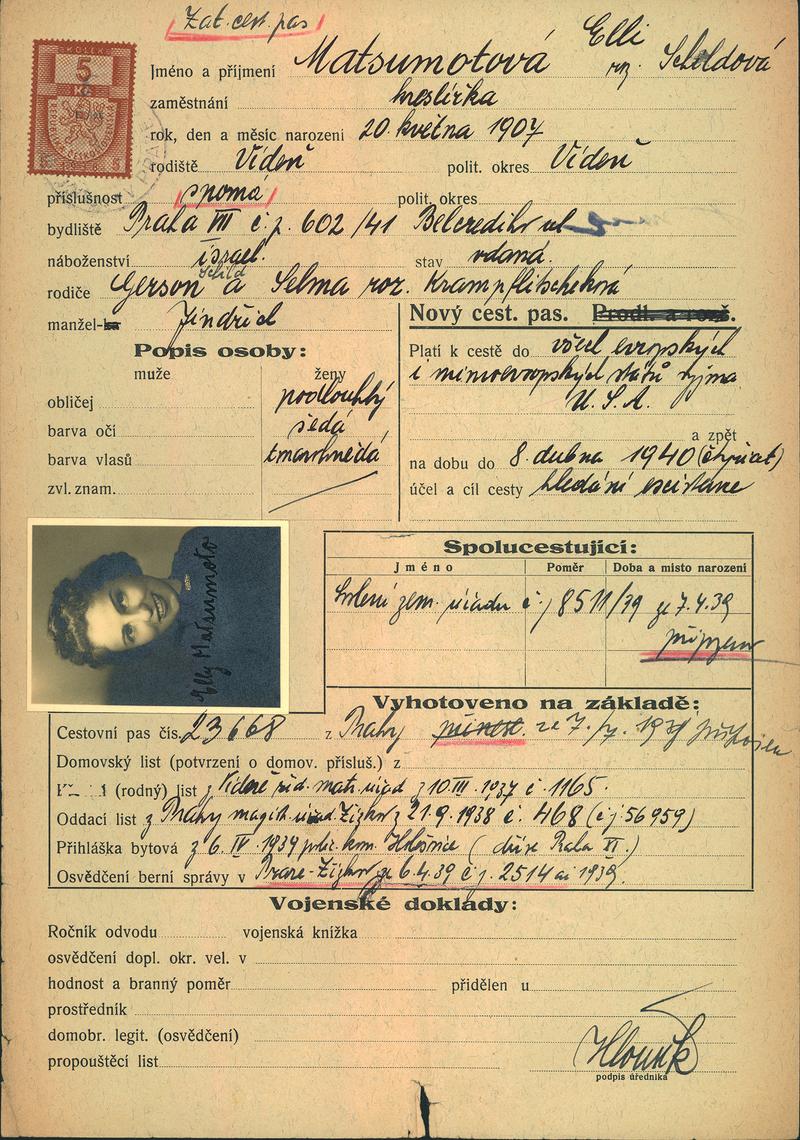 Zat. cest. pas
KOLEK
5
Kč
Elli
Jméno a příjmení Matsumotová roz. Schildová
zaměstnání kreslířka
rok, den a měsíc narození 20. května 1907
rodiště Vídeň polit. okres Vídeň
příslušnost sporná polit. okres
bydliště Praha VII č.p. 602/41 Belcrediho ul
náboženství israel. stav vdaná.
Schild
rodiče Gerson a Selma roz. Krampflitscheková
manžel-ka Jindřich
Nový cest. pas. Prodl. a rozš.
Popis osoby:
muže ženy
obličej podlouhlý
barva očí šedá
barva vlasů tmavohnědá
zvl. znam.
Platí k cestě do všech evropských
i mimoevropských států vyjma
U.S.A.
a zpět
na dobu do 8. dubna 1940
účel a cíl cesty hledání existence
Elly Matsumoto
Spolucestující:
Jméno Poměr Doba a místo narození
zem. úřadu č.j 8511/39 ze 7.4.39
Vyhotoveno na základě:
Cestovní pas čís. 23668 z Prahy
Domovský list (potvrzení o domov. přísluš.) z
(rodný) list z Vídně žid. matr. úřad z 10.III.1937 č. 1165.
Oddací list z Prahy magistr. úřad Žižkov z 21.9.1938 č. 468 (čj 56959)
Přihláška bytová z 6.IV.1939 polic. kom. (dříve Praha VI.)
Osvědčení berní správy v Praze-Žižkov ze 6.4.39 č.j. 2514 ai 1939.
Vojenské doklady:
Ročník odvodu vojenská knížka
osvědčení dopl. okr. vel. v
hodnost a branný poměr přidělen u
prostředník
domobr. legit. (osvědčení)
propouštěcí list
podpis úředníka